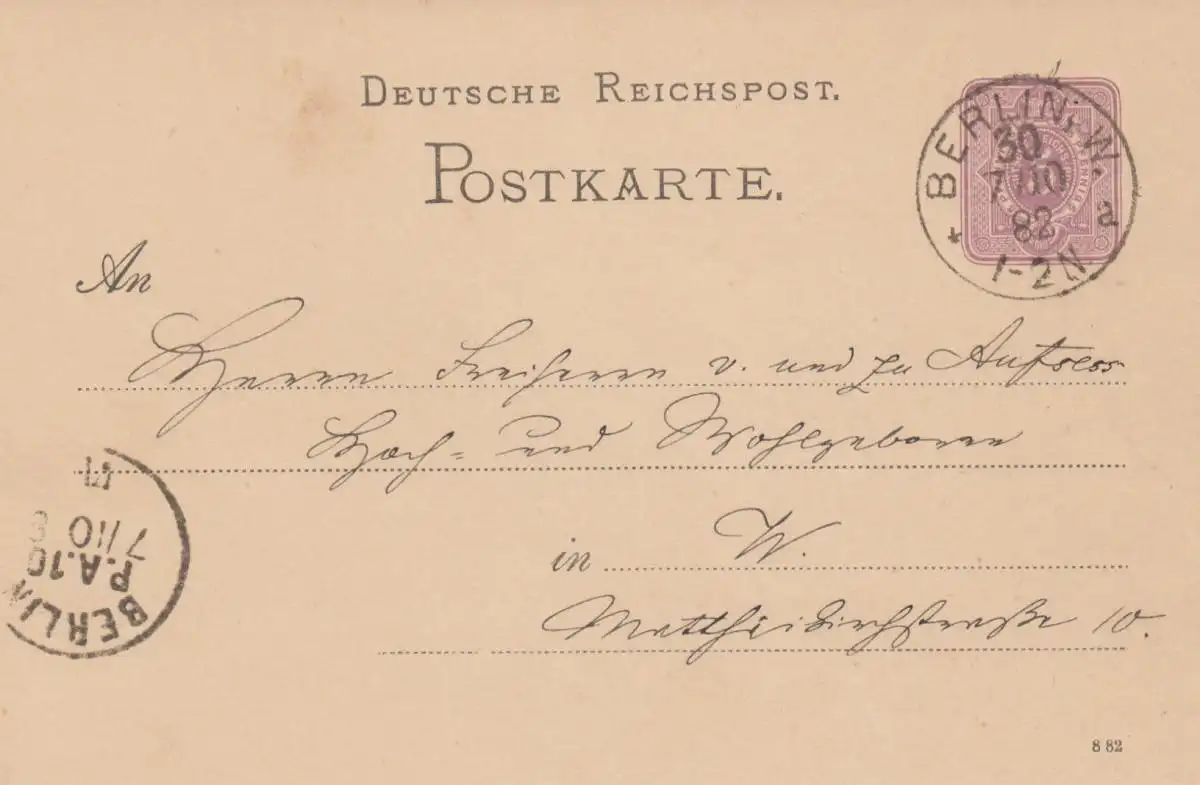 DEUTSCHE REICHSPOST.
POSTKARTE.
BERLIN, W.
30
7/10
82
1-2N
* a
An
Herrn Freiherrn v. und zu Aufsess
Hoch- und Wohlgeboren
in W.
Matthäikirchstraße 10.
BERLIN
P.A.10
7/10
8 82